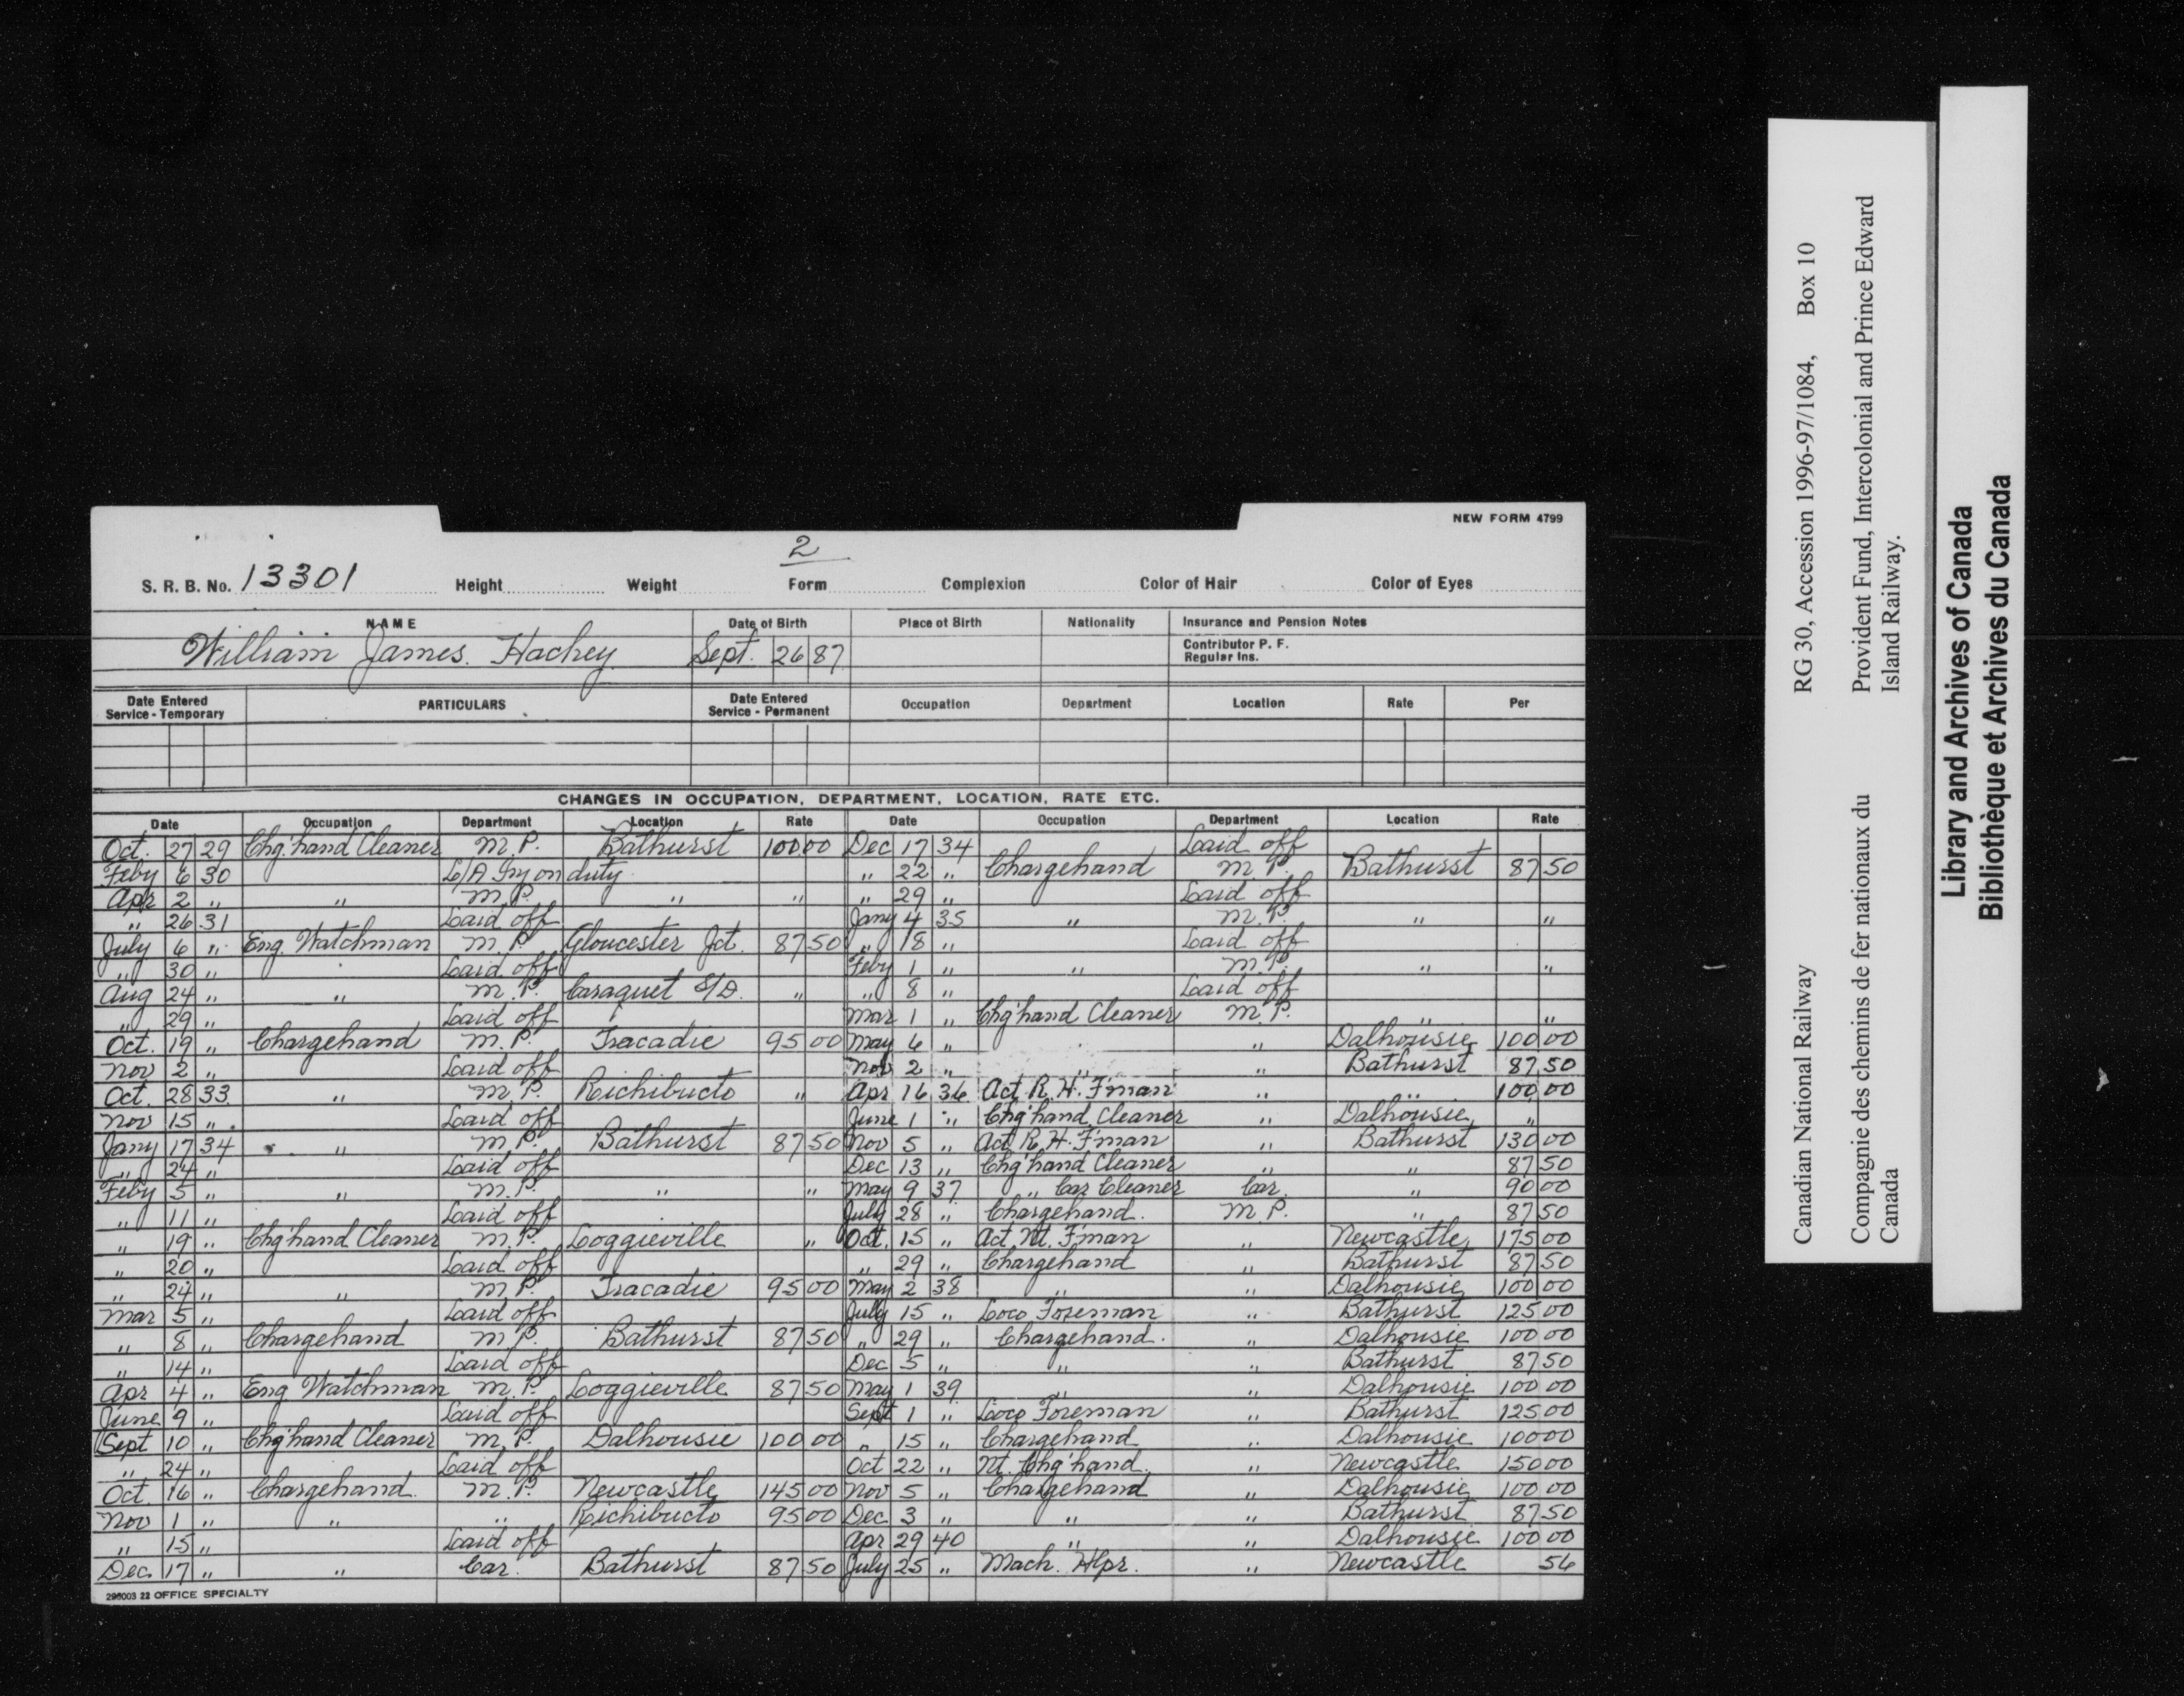 NEW FORM 4799
2
S. R. B. No. 13301 Height Weight Form Complexion Color of Hair Color of Eyes
NAME Date of Birth Place of Birth Nationality Insurance and Pension Notes
William James Hachey Sept. 26 87 Contributor P. F.
Regular Ins.
Date Entered Service - Temporary PARTICULARS Date Entered Service - Permanent Occupation Department Location Rate Per
CHANGES IN OCCUPATION, DEPARTMENT, LOCATION, RATE ETC.
Date Occupation Department Location Rate Date Occupation Department Location Rate
Oct. 27 29 Chg.hand Cleaner M.P. Bathurst 100 00 Dec 17 34 Laid off
Feby 6 30 L/A Inj on duty " 22 " Chargehand M.P. Bathurst 87 50
Apr 2 " " M.P. " " " 29 " Laid off
" 26 31 Laid off Jany 4 35 " M.P. " "
July 6 " Eng. Watchman M.P. Gloucester Jct. 87 50 " 18 " Laid off
" 30 " Laid off Feby 1 " " M.P. " "
Aug 24 " " M.P. Caraquet S/D. " " 8 " Laid off
" 29 " Laid off Mar 1 " Chg'hand Cleaner M.P. " "
Oct. 19 " Chargehand M.P. Tracadie 95 00 May 6 " " Dalhousie 100 00
Nov 2 " Laid off Nov 2 " " " Bathurst 87 50
Oct. 28 33 " M.P. Richibucto " Apr 16 36 Act. R. H. F'man " " 100 00
Nov 15 " Laid off June 1 " Chg'hand Cleaner " Dalhousie "
Jany 17 34 " M.P. Bathurst 87 50 Nov 5 " Act R.H. F'man " Bathurst 130 00
" 24 " Laid off Dec 13 " Chg'hand Cleaner " " 87 50
Feby 5 " " M.P. " " May 9 37 " Car Cleaner Car. " 90 00
" 11 " Laid off July 28 " Chargehand. M.P. " 87 50
" 19 " Chg'hand Cleaner M.P. Loggieville " Oct. 15 " Act. Nt. F'man " Newcastle 175 00
" 20 " Laid off " 29 " Chargehand " Bathurst 87 50
" 24 " " M.P. Tracadie 95 00 May 2 38 " " Dalhousie 100 00
Mar 5 " Laid off July 15 " Loco Foreman " Bathurst 125 00
" 8 " Chargehand M.P. Bathurst 87 50 " 29 " Chargehand. " Dalhousie 100 00
" 14 " Laid off Dec 5 " " " Bathurst 87 50
Apr 4 " Eng Watchman M.P. Loggieville 87 50 May 1 39 " " Dalhousie 100 00
June 9 " Laid off Sept 1 " Loco Foreman " Bathurst 125 00
Sept 10 " Chg'hand Cleaner M.P. Dalhousie 100 00 " 15 " Chargehand " Dalhousie 100 00
" 24 " Laid off Oct 22 " Nt. Chg'hand. " Newcastle 150 00
Oct. 16 " Chargehand. M.P. Newcastle 145 00 Nov 5 " Chargehand " Dalhousie 100 00
Nov 1 " " " Richibucto 95 00 Dec. 3 " " " Bathurst 87 50
" 15 " Laid off Apr 29 40 " " Dalhousie 100 00
Dec. 17 " " Car. Bathurst 87 50 July 25 " Mach. Hlpr. " Newcastle 56
22 OFFICE SPECIALTY
Canadian National Railway RG 30, Accession 1996-97/1084, Box 10
Compagnie des chemins de fer nationaux du Canada Provident Fund, Intercolonial and Prince Edward Island Railway.
Library and Archives of Canada
Bibliothèque et Archives du Canada